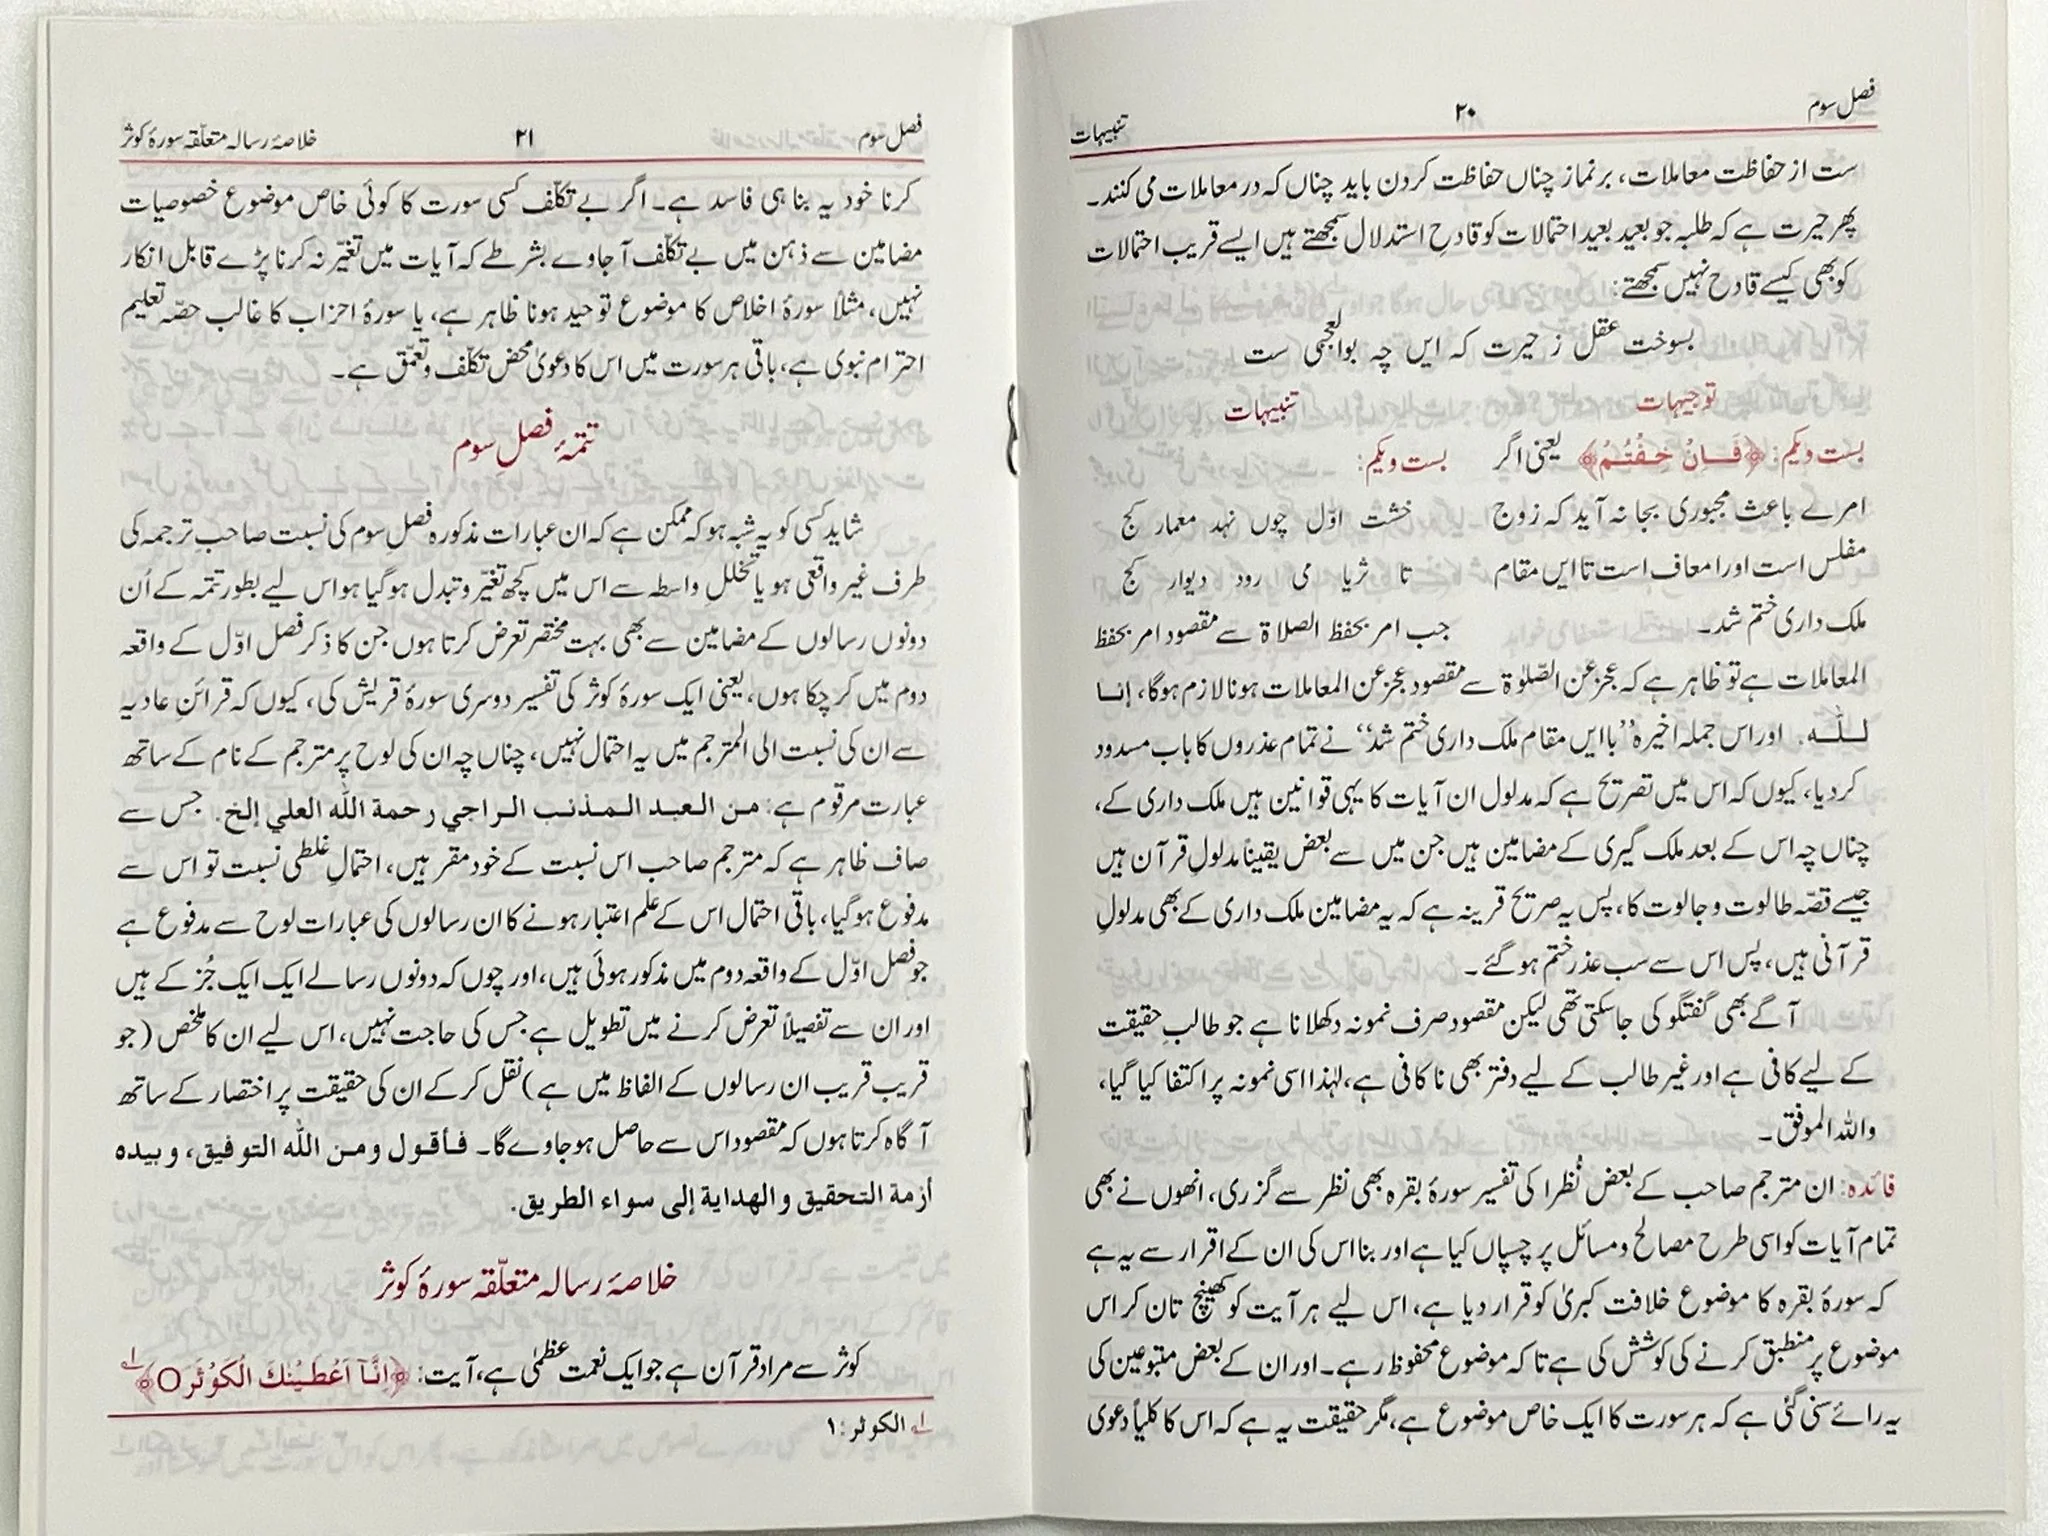 فصل سوم ۲۰ تنبیہات
ست از حفاظت معاملات، بر نماز چناں حفاظت کردن باید چناں کہ در معاملات می کنند۔
پھر حیرت ہے کہ طلبہ جو بعید بعید احتمالات کو قادحِ استدلال سمجھتے ہیں ایسے قریب احتمالات
کو بھی کیسے قادح نہیں سمجھتے:
بسوخت عقل ز حیرت کہ ایں چہ بوالعجمی ست
توجیہات تنبیہات
بست ویکم: ﴿فَاِنْ خِفْتُمْ﴾ یعنی اگر بست ویکم:
امرے باعث مجبوری بجا نہ آید کہ زوج خشت اوّل چوں نہد معمار کج
مفلس است اورا معاف است تا ایں مقام تا ثریا می رود دیوار کج
ملک داری ختم شد۔ جب امر بحفظ الصلاۃ سے مقصود امر بحفظ
المعاملات ہے تو ظاہر ہے کہ عجز عن الصّلوٰۃ سے مقصود عجز عن المعاملات ہونا لازم ہوگا، إنـا
لـلّٰـه. اور اس جملہ اخیرہ ”باایں مقام ملک داری ختم شد“ نے تمام عذروں کا باب مسدود
کردیا، کیوں کہ اس میں تصریح ہے کہ مدلول ان آیات کا یہی قوانین ہیں ملک داری کے،
چناں چہ اس کے بعد ملک گیری کے مضامین ہیں جن میں سے بعض یقیناً مدلولِ قرآن ہیں
جیسے قصّہ طالوت و جالوت کا، پس یہ صریح قرینہ ہے کہ یہ مضامین ملک داری کے بھی مدلولِ
قرآنی ہیں، پس اس سے سب عذر ختم ہوگئے۔
آگے بھی گفتگو کی جاسکتی تھی لیکن مقصود صرف نمونہ دکھلانا ہے جو طالبِ حقیقت
کے لیے کافی ہے اور غیر طالب کے لیے دفتر بھی ناکافی ہے، لہٰذا اسی نمونہ پر اکتفا کیا گیا،
واللہ الموفق۔
فائدہ: ان مترجم صاحب کے بعض نُظرا کی تفسیر سورۂ بقرہ بھی نظر سے گزری، انھوں نے بھی
تمام آیات کو اسی طرح مصالح و مسائل پر چسپاں کیا ہے اور بنا اس کی ان کے اقرار سے یہ ہے
کہ سورۂ بقرہ کا موضوع خلافت کبریٰ کو قرار دیا ہے، اس لیے ہر آیت کو کھینچ تان کر اس
موضوع پر منطبق کرنے کی کوشش کی ہے تاکہ موضوع محفوظ رہے۔ اور ان کے بعض متبوعین کی
یہ رائے سنی گئی ہے کہ ہر سورت کا ایک خاص موضوع ہے، مگر حقیقت یہ ہے کہ اس کا کلیاً دعوی
فصل سوم ۲۱ خلاصۂ رسالہ متعلّقہ سورۂ کوثر
کرنا خود یہ بنا ہی فاسد ہے۔ اگر بے تکلّف کسی سورت کا کوئی خاص موضوع خصوصیات
مضامین سے ذہن میں بے تکلّف آجاوے بشرطے کہ آیات میں تغیّر نہ کرنا پڑے قابل انکار
نہیں، مثلاً سورۂ اخلاص کا موضوع توحید ہونا ظاہر ہے، یا سورۂ احزاب کا غالب حصّہ تعلیم
احترام نبوی ہے، باقی ہر سورت میں اس کا دعویٰ محض تکلّف و تعمّق ہے۔
تتمّۂ فصل سوم
شاید کسی کو یہ شبہ ہو کہ ممکن ہے کہ ان عبارات مذکورہ فصل سوم کی نسبت صاحبِ ترجمہ کی
طرف غیر واقعی ہو یا تخللِ واسطہ سے اس میں کچھ تغیّر و تبدل ہوگیا ہو اس لیے بطور تتمہ کے اُن
دونوں رسالوں کے مضامین سے بھی بہت مختصر تعرض کرتا ہوں جن کا ذکر فصل اوّل کے واقعہ
دوم میں کرچکا ہوں، یعنی ایک سورۂ کوثر کی تفسیر دوسری سورۂ قریش کی، کیوں کہ قرائنِ عادیہ
سے ان کی نسبت الی المترجم میں یہ احتمال نہیں، چناں چہ ان کی لوح پر مترجم کے نام کے ساتھ
عبارت مرقوم ہے: مـن الـعبـد الـمـذنـب الـراجي رحمة اللّٰه العلي إلخ. جس سے
صاف ظاہر ہے کہ مترجم صاحب اس نسبت کے خود مقر ہیں، احتمالِ غلطی نسبت تو اس سے
مدفوع ہوگیا، باقی احتمال اس کے علم اعتبار ہونے کا ان رسالوں کی عبارات لوح سے مدفوع ہے
جو فصل اوّل کے واقعہ دوم میں مذکور ہوئی ہیں، اور چوں کہ دونوں رسالے ایک ایک جُز کے ہیں
اور ان سے تفصیلاً تعرض کرنے میں تطویل ہے جس کی حاجت نہیں، اس لیے ان کا ملخص (جو
قریب قریب ان رسالوں کے الفاظ میں ہے) نقل کرکے ان کی حقیقت پر اختصار کے ساتھ
آگاہ کرتا ہوں کہ مقصود اس سے حاصل ہوجاوے گا۔ فـأقـول ومـن اللّٰه التوفيق، وبيده
أزمة التحقيق والهداية إلى سواء الطريق.
خلاصۂ رسالہ متعلّقہ سورۂ کوثر
کوثر سے مراد قرآن ہے جو ایک نعمت عظمیٰ ہے، آیت: ﴿اِنَّآ اَعْطَيْنٰكَ الْكَوْثَرَ O﴾ ؎۱
؎۱ الکوثر: ۱